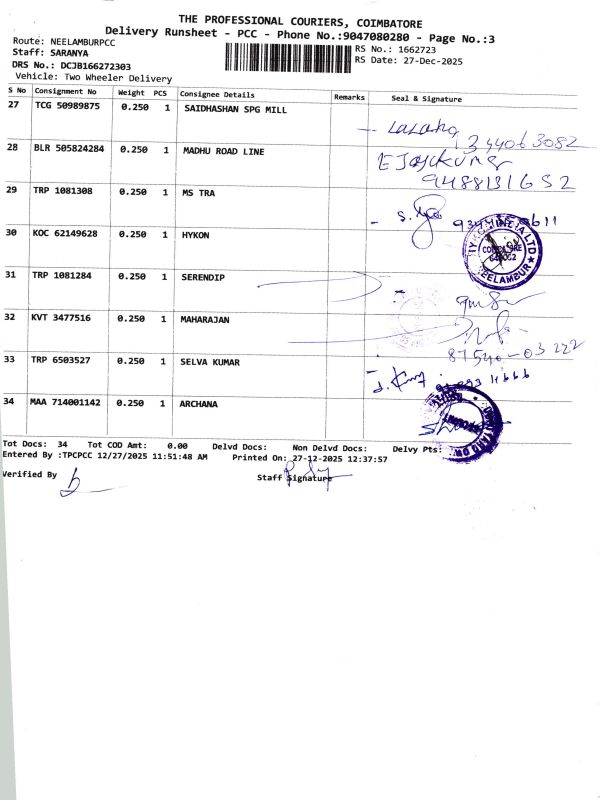 THE PROFESSIONAL COURIERS, COIMBATORE
Delivery Runsheet - PCC - Phone No.:9047080280 - Page No.:3
Route: NEELAMBURPCC
RS No.: 1662723
Staff: SARANYA
RS Date: 27-Dec-2025
DRS No.: DCJB166272303
Vehicle: Two Wheeler Delivery
S No Consignment No Weight PCS Consignee Details Remarks Seal & Signature
27 TCG 50989875 0.250 1 SAIDHASHAN SPG MILL
28 BLR 505824284 0.250 1 MADHU ROAD LINE
E Jayakumar
9488131652
29 TRP 1081308 0.250 1 MS TRA
30 KOC 62149628 0.250 1 HYKON
31 TRP 1081284 0.250 1 SERENDIP
32 KVT 3477516 0.250 1 MAHARAJAN
87540-03222
33 TRP 6503527 0.250 1 SELVA KUMAR
34 MAA 714001142 0.250 1 ARCHANA
Tot Docs: 34 Tot COD Amt: 0.00 Delvd Docs: Non Delvd Docs: Delvy Pts:
Entered By :TPCPCC 12/27/2025 11:51:48 AM Printed On: 27-12-2025 12:37:57
Verified By
Staff Signature